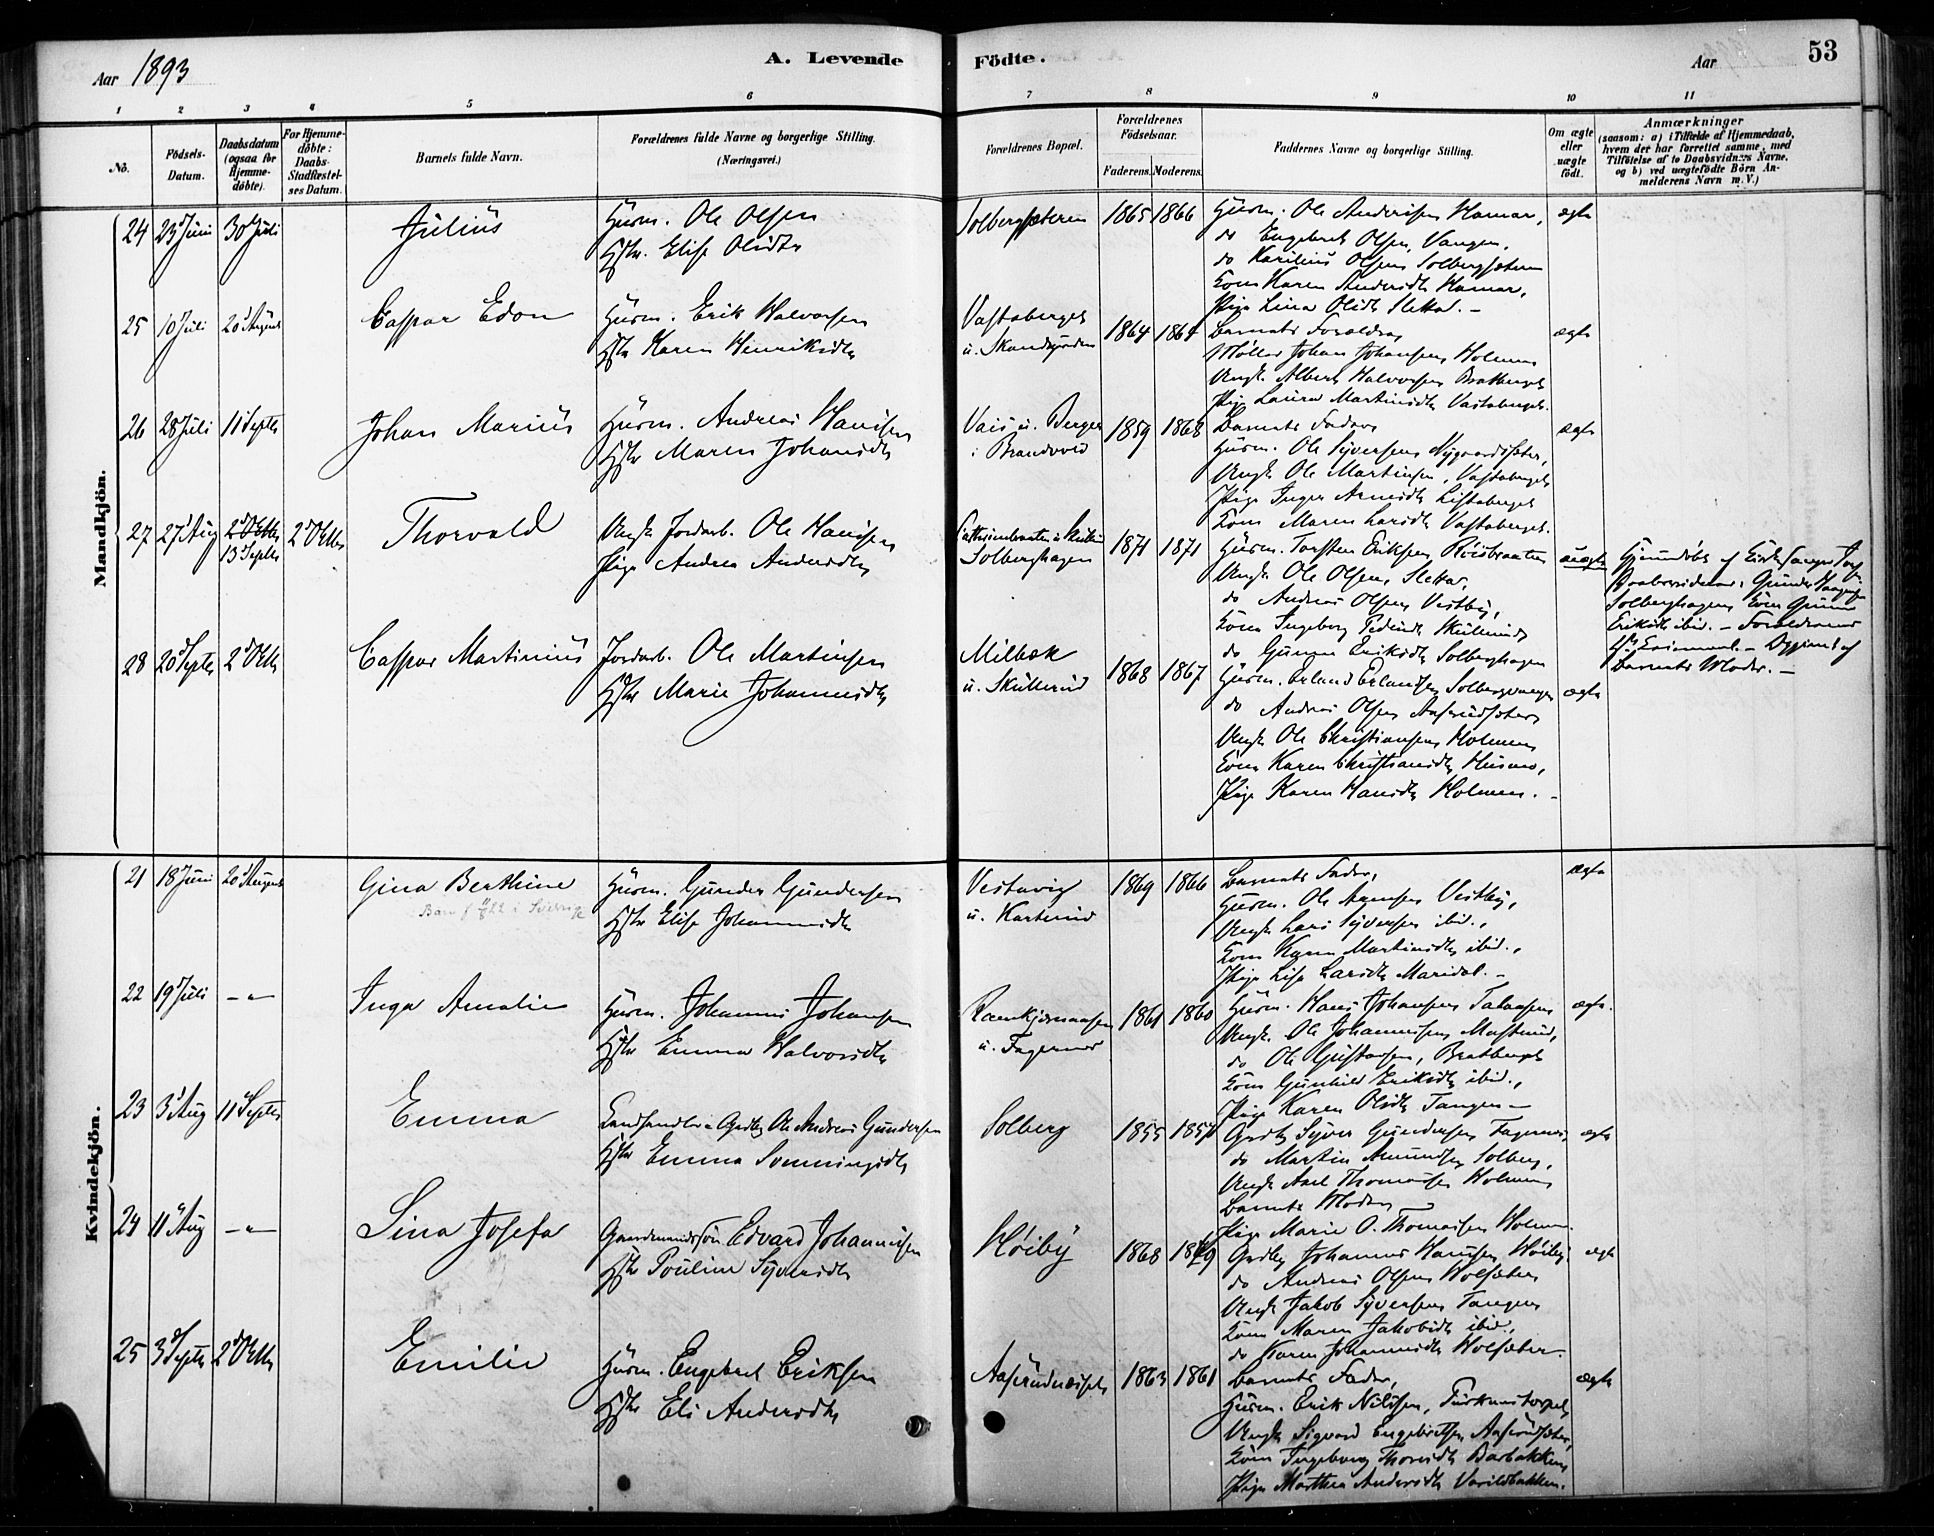 Aar 1893
A. Levende Födte.
Aar
53
1 2 3 4 5 6 7 8 9 10 11
No.
Födsels-Datum.
Daabsdatum (ogsaa for Hjemme-døbte).
For Hjemme-döbte: Daabs-Stadfæstel-ses Datum.
Barnets fulde Navn.
Forældrenes fulde Navne og borgerlige Stilling. (Næringsvei.)
Forældrenes Bopæl.
Forældrenes Födselsaar.
Faderens. Moderens.
Faddernes Navne og borgerlige Stilling.
Om ægte eller uægte födt.
Anmærkninger
(saasom: a) i Tilfælde af Hjemmedaab, hvem der har forrettet samme, med Tilföielse af to Daabsvidners Navne, og b) ved uægtefödte Börn An-melderens Navn m. V.)
Mandkjön.
24 23 Juni 30 Juli Julius
Husm. Ole Olsen
Hstr. Elise Olsdtr
Solbergsæteren 1865 1866
Husm. Ole Andersen Hamar,
do Engebret Olsen, Vangen,
do Karelius Olsen Solbergsæteren
Kone Karen Andersdtr Hamar,
Pige Lina Olsdtr Slettod. -
ægte
25 10 Juli 20 August Caspar Edon
Husm. Erik Halvorsen
Hstr Karen Henriksdtr
Vastaberget
1864 1864
Barnets Forældre,
Møller Johan Johansen, Holmen
Ungk. Albert Halvorsen Bratberget
Pige Laura Martinsdtr Vastaberget.
ægte
26 28 Juli 11 Septbr Johan Marius
Husm. Andreas Hansen
Hstr Maren Johansdtr
i Brandvold
1859 1868
Barnets Fader
Husm. Ole Syversen Nygaardsæter,
Ungk. Ole Martinsen, Vastaberget
Pige Inger Arnesdtr Listaberget
Kone Maren Larsdtr Vastaberget.
ægte
27 27 Aug 2 Octbr 13 Septbr 2 Octbr Thorvald
Ungk Jordarb. Ole Hansen
Pige Andrea Andersdtr
Solberghagen 1871 1871
Husm. Torsten Eriksen Risbraaten
Ungk. Ole Olsen, Slettas,
do Andreas Olsen Vestby,
do Gunnor Eriksdtr Solberghagen
uægte
Hjemdøbt af Kirkesanger
Daabsvidner: Gunder
Solberghagen Kone
Eriksdtr ibid. - Forældrenes
Barnets Moder. -
28 20 Septbr 2 Octbr Caspar Martinius
Jordarb. Ole Martinsen
Hstr Marie Johannesdtr
Milbæk
u. Skullerud
1868 1867
Husm. Erland Erlandsen Solbergvangen
do Andreas Olsen Aaserudsæter
Ungk Ole Christiansen, Holmen
Kone Karen Christiansdtr Husmo,
Pige Karen Hansdtr Holmen. -
ægte
Kvindekjön.
21 18 Juni 20 August Gina Berthine
Husm. Gunder Gundersen
Hstr Elise Johannesdtr
Vestavig
1869 1866
Barnets Fader,
Husm. Ole Arnesen Vestby,
Ungk Lars Syversen ibid.,
Kone Karen Martinsdtr ibid.,
Pige Lise Larsdtr Maridal. -
ægte
22 19 Juli -"- Inga Amalie
Husm. Johannes Johansen
Hstr Emma Halvorsdtr
u. Fagernes
1861 1860
Husm. Hans Johansen
Ungk. Ole Johannesen Mastrud,
do Ole Gustavsen, Bratberget
Kone Gunhild Eriksdtr ibid.,
Pige Karen Olsdtr Tangen -
ægte
23 3 Aug 11 Septbr Emma
Landhandler & Grdbr Ole Andreas Gundersen
Hstr Emma Svenningsdtr
Solberg 1855 1857
Grdbr Syver Gundersen Fagernes,
do Martin Amundsen Solberg,
Ungk Axel Thomassen Holmen
Barnets Moder
Pige Marie O. Thomassen Holmen.
ægte
24 11 Aug -"- Lina Josefa
Gaardmandssøn Edvard Johannesen
Hstr Pouline Syversdtr
Høiby 1868
Grdbr Johannes Hansen Høiby,
do Andreas Olsen Wolsæter
Ungk Jakob Syversen Tangen
Kone Maren Jakobsdtr ibid.,
do Karen Johannesdtr Wolsæter.
ægte
25 3 Septbr 2 Octbr Emilie
Husm. Engebret Eriksen
Hstr Eli Andersdtr
1863 1861
Barnets Fader,
Husm. Erik Nilsen,
Ungk Sigvard Engebretsen Aaserudsæter,
Kone Ingeborg Thoresdtr Barbakken
Pige Marthea Andersdtr Varildbakken.
ægte